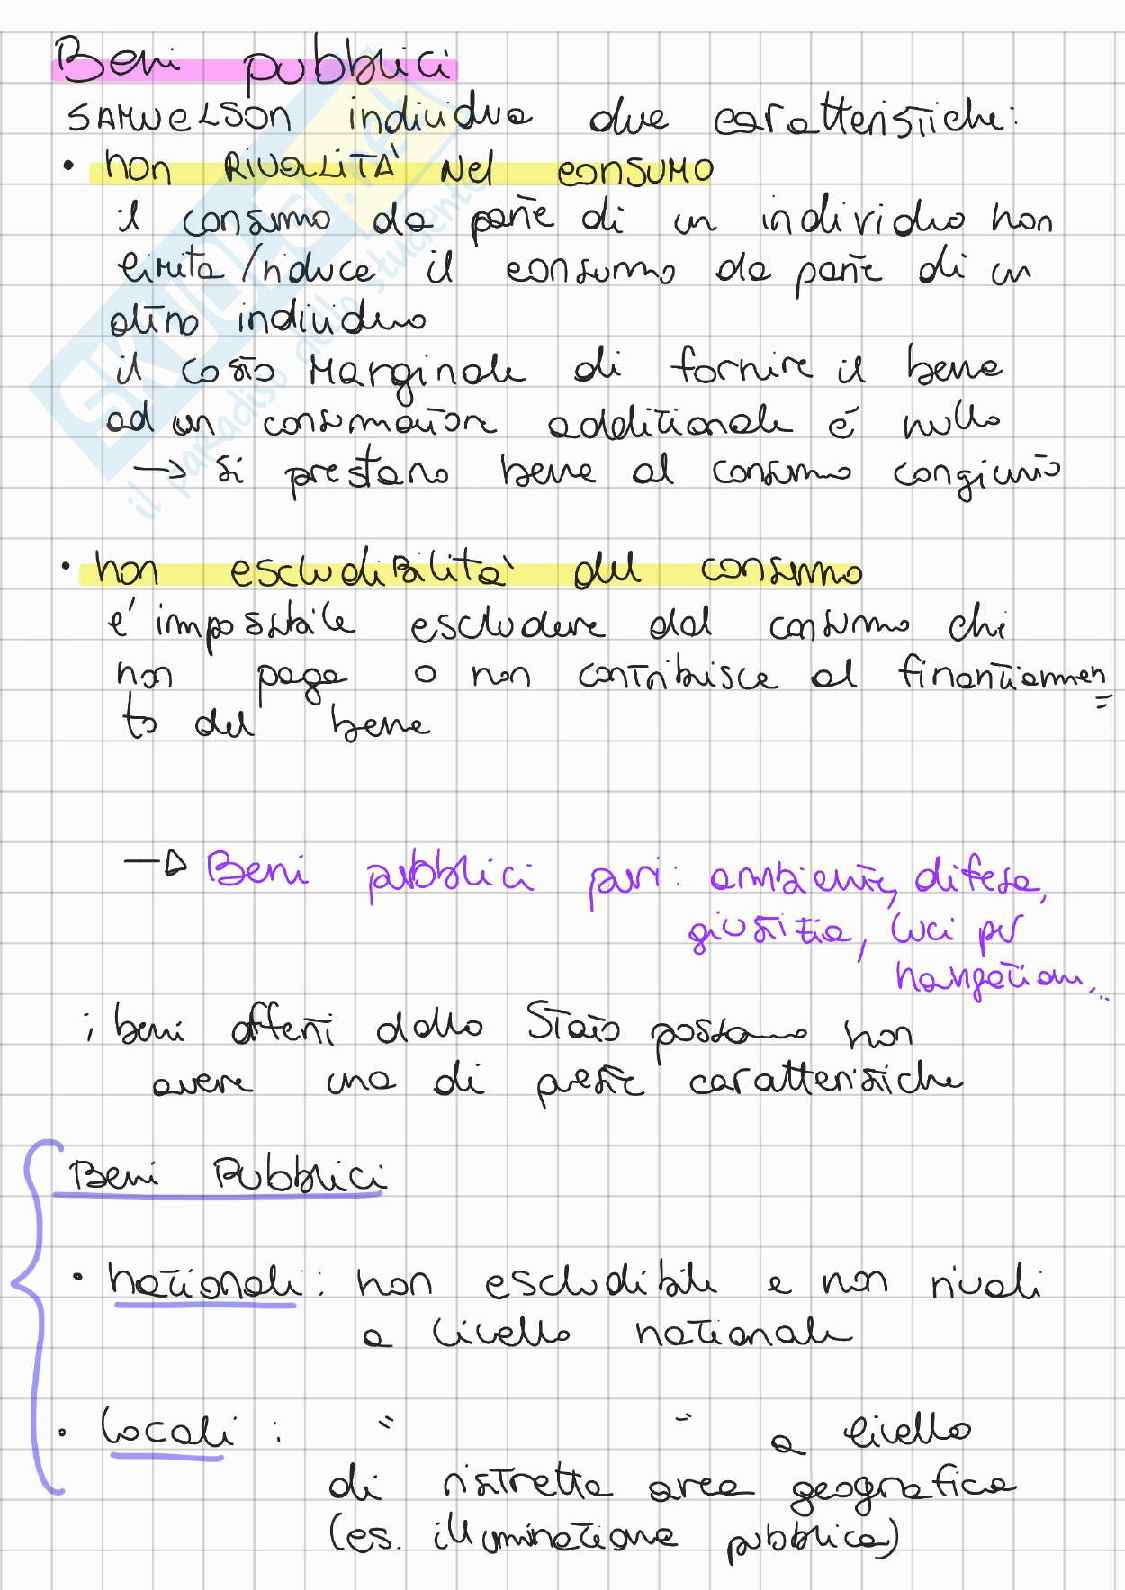 Beni pubblici
SAMUELSON individua due caratteristiche:
• non RIVALITÀ Nel consumo
il consumo da parte di un individuo non
limita/riduce il consumo da parte di un
altro individuo
il costo Marginale di fornire il bene
ad un consumatore addizionale é nullo
→ si prestano bene al consumo congiunto
• non escludibilità del consumo
é impossibile escludere dal consumo chi
non paga o non contribuisce al finanziamen=
to del bene
→ Beni pubblici puri: ambiente, difesa,
giustizia, luci per
navigazione,..
i beni offerti dallo Stato possono non
avere una di queste caratteristiche
Beni Pubblici
• nazionali: non escludibili e non rivali
a livello nazionale
• locali: " " a livello
di ristretta area geografica
(es. illuminazione pubblica)
SKUOLA.net
il paradiso dello studente